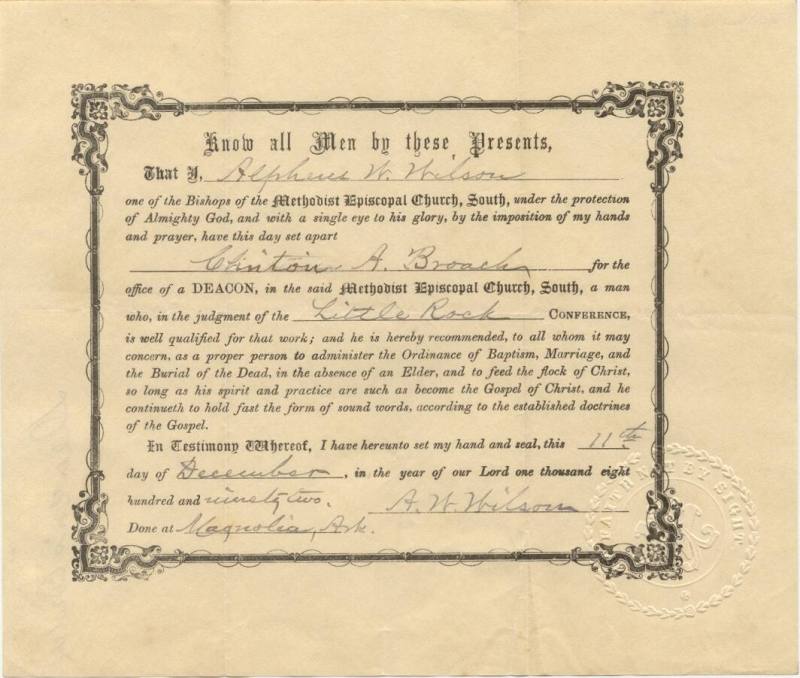 Know all Men by these Presents,
That I, Alpheus W. Wilson
one of the Bishops of the Methodist Episcopal Church, South, under the protection
of Almighty God, and with a single eye to his glory, by the imposition of my hands
and prayer, have this day set apart
Clinton A. Broach for the
office of a DEACON, in the said Methodist Episcopal Church, South, a man
who, in the judgment of the Little Rock CONFERENCE,
is well qualified for that work; and he is hereby recommended, to all whom it may
concern, as a proper person to administer the Ordinance of Baptism, Marriage, and
the Burial of the Dead, in the absence of an Elder, and to feed the flock of Christ,
so long as his spirit and practice are such as become the Gospel of Christ, and he
continueth to hold fast the form of sound words, according to the established doctrines
of the Gospel.
In Testimony Whereof, I have hereunto set my hand and seal, this 11th
day of December, in the year of our Lord one thousand eight
hundred and ninety two. A. W. Wilson
Done at Magnolia, Ark.
BY SIGHT